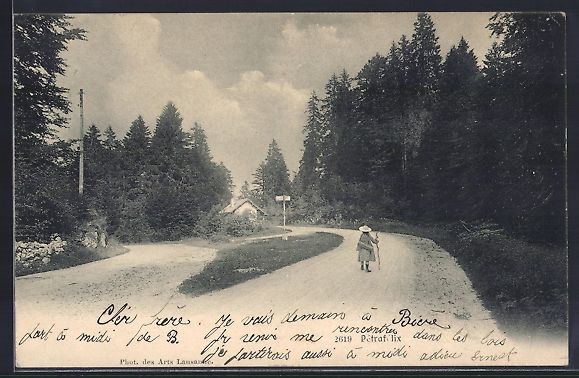 Cher frère. Je vais demain à Bière
part à midi de B. Je reviens me rencontrer dans les bois
2619 Pétrafélix
je partirais aussi à midi adieu Ernest
Phot. des Arts Lausanne.